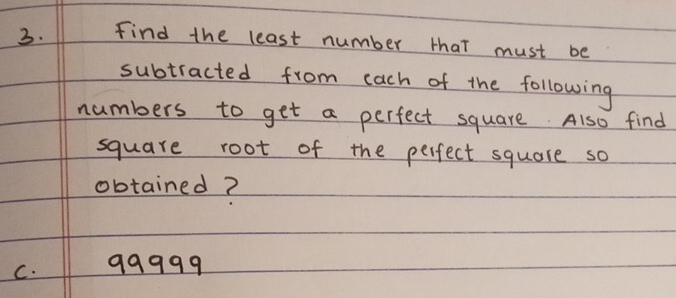 3. Find the least number that must be
subtracted from each of the following
numbers to get a perfect square. Also find
square root of the perfect square so
obtained?
C. 99999